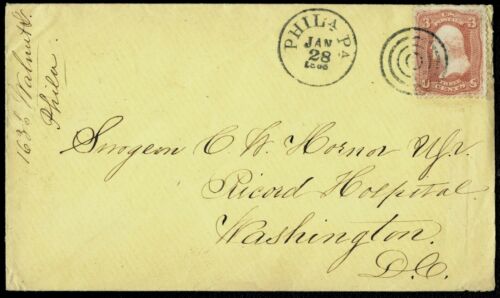 1638 Walnut St.
Phila
PHILA. PA
JAN
28
3 U.S. POSTAGE 3
THREE
U CENTS S
Surgeon C. W. Hornor
Ricord Hospital
Washington
D.C.